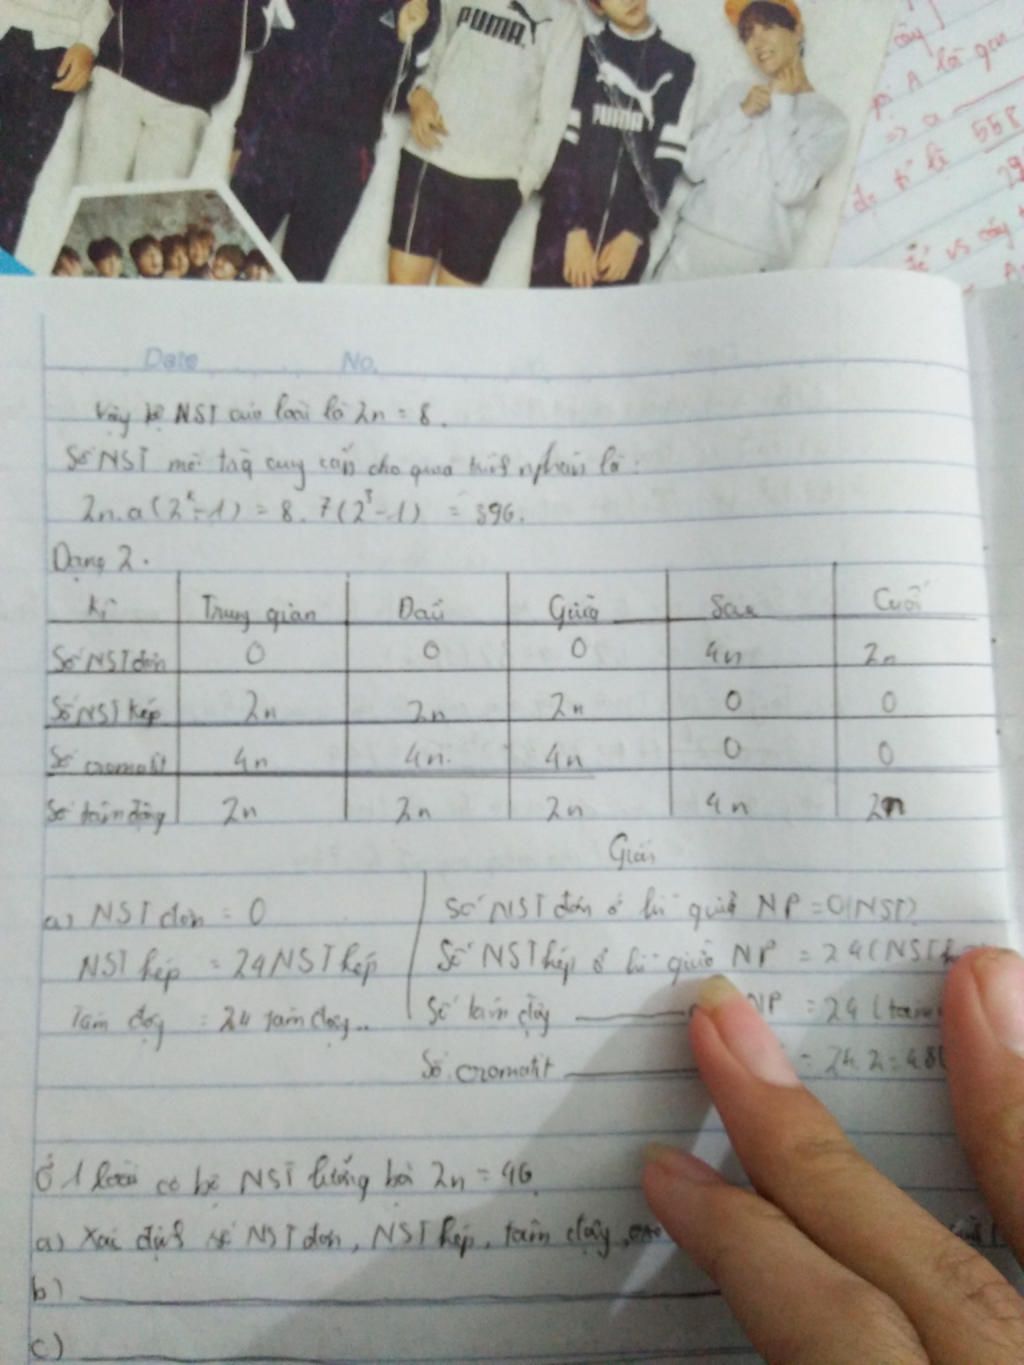 PUMA
PUMA
cây
A là gen
=> a
tỉ lệ 558
Date No.
Vậy bộ NST của loài là 2n = 8.
Số NST môi trg cung cấp cho quá trình nphân là:
2n.a(2^x-1) = 8.7(2^3-1) = 396.
Dạng 2.
Kì Trung gian Đầu Giữa Sau Cuối
Số NST đơn 0 0 0 4n 2n
Số NST kép 2n 2n 2n 0 0
Số cromatit 4n 4n 4n 0 0
Số tâm động 2n 2n 2n 4n 2n
Giải
a) NST đơn = 0
NST kép = 24 NST kép
Tâm động = 24 tâm động..
Số NST đơn ở kì giữa NP = 0(NST)
Số NST kép ở kì giữa NP = 24(NST
Số tâm động NP = 24 (tâm
Số cromatit = 24.2 = 48
Ở 1 loài có bộ NST lưỡng bội 2n = 46
a) Xác định số NST đơn, NST kép, tâm động,
b)
c)